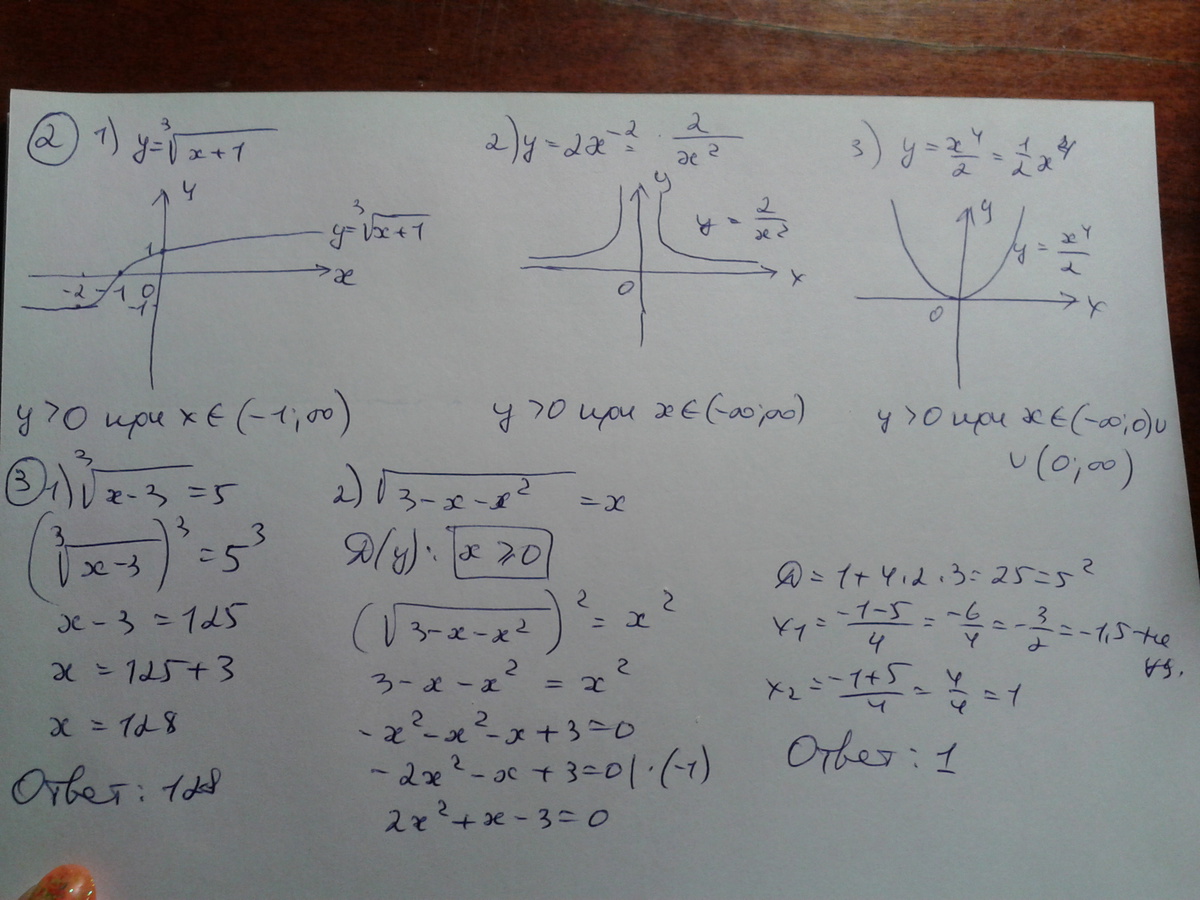 ② 1) y=∛(x+1)
y
y=∛(x+1)
1
-2 -1 0
-1
x
y>0 при x∈(-1;∞)
2) y=2x⁻² = 2/x²
y
y = 2/x²
0
x
y>0 при x∈(-∞;∞)
3) y=x⁴/2=1/2x⁴
y
y=x⁴/2
0
x
y>0 при x∈(-∞;0)∪
∪(0;∞)
③ 1) ∛(x-3)=5
(∛(x-3))³=5³
x-3=125
x=125+3
x=128
Ответ: 128
2) √(3-x-x²)=x
D(y): x≥0
(√(3-x-x²))²=x²
3-x-x²=x²
-x²-x²-x+3=0
-2x²-x+3=0|·(-1)
2x²+x-3=0
D=1+4·2·3=25=5²
x₁=(-1-5)/4=-6/4=-3/2=-1,5-не
уд.
x₂=(-1+5)/4=4/4=1
Ответ: 1